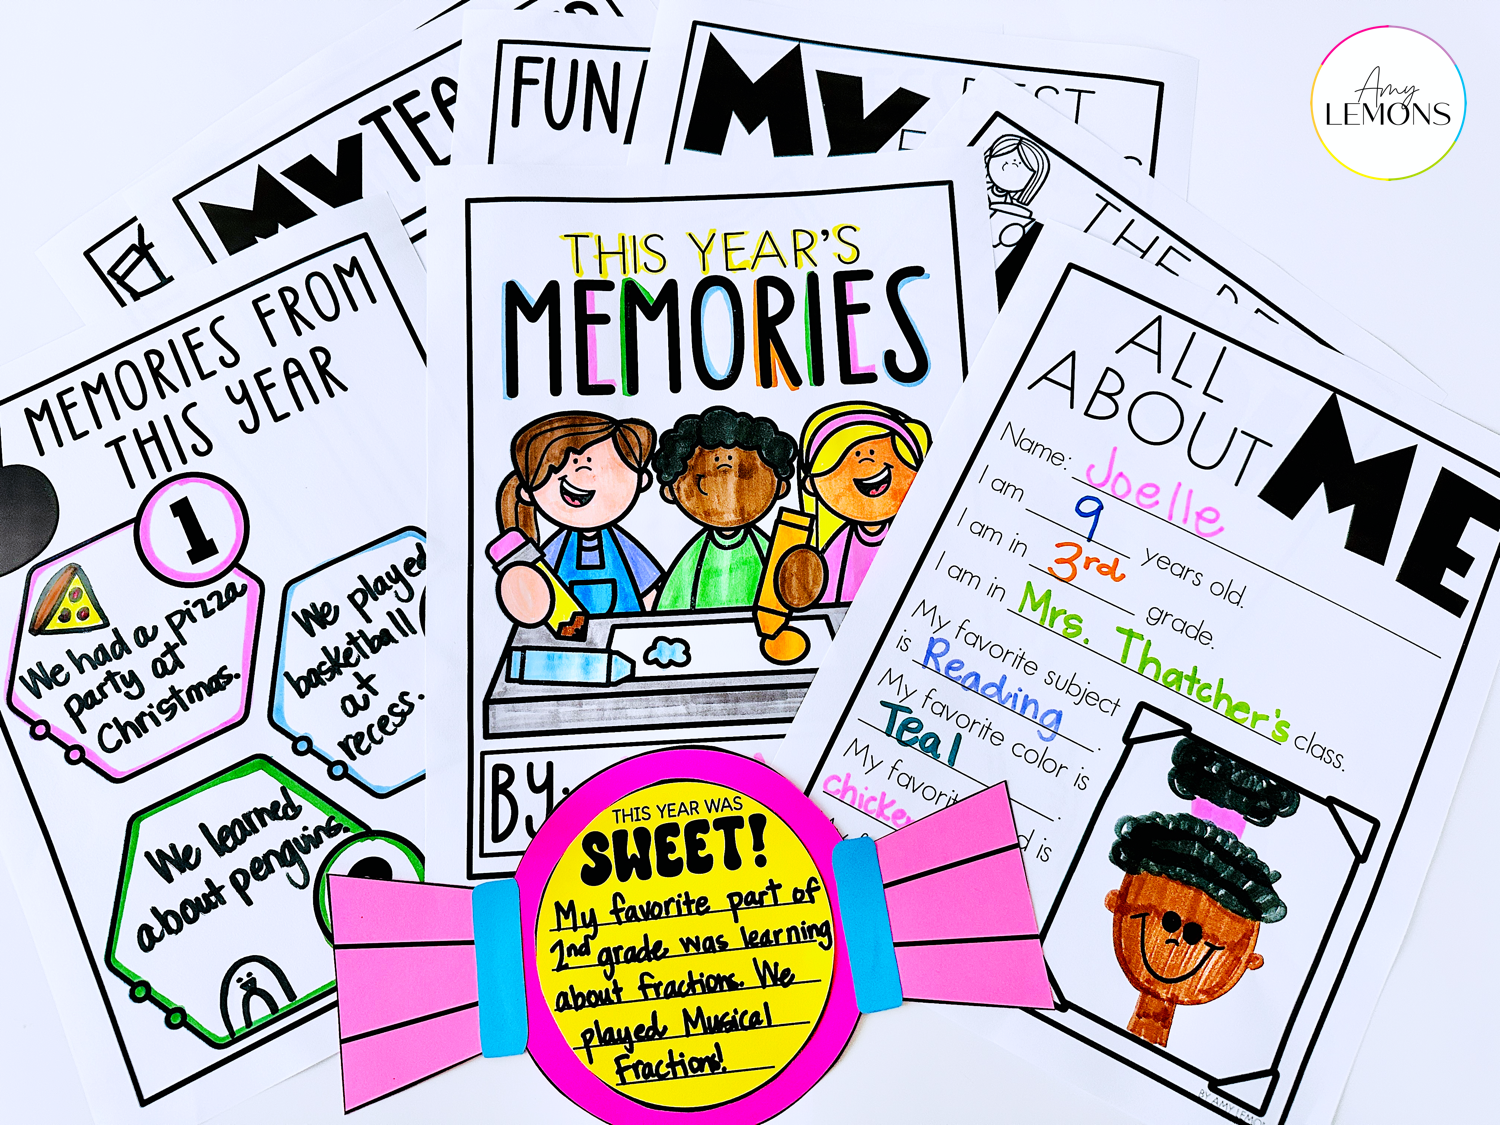 Amy
LEMONS
MY TEA
FUN
MY
BEST
THE
MEMORIES FROM
THIS YEAR
1
We had a pizza
party at
Christmas.
We played
basketball
at
recess.
We learned
about penguins.
THIS YEAR'S
MEMORIES
BY:
THIS YEAR WAS
SWEET!
My favorite part of
2nd grade was learning
about fractions. We
played Musical
Fractions!
ALL
ABOUT ME
Name: Joelle
I am 9 years old.
I am in 3rd grade.
I am in Mrs. Thatcher's class.
My favorite subject
is Reading.
My favorite color is
Teal.
My favorit d is
chicke
BY AMY LEMON